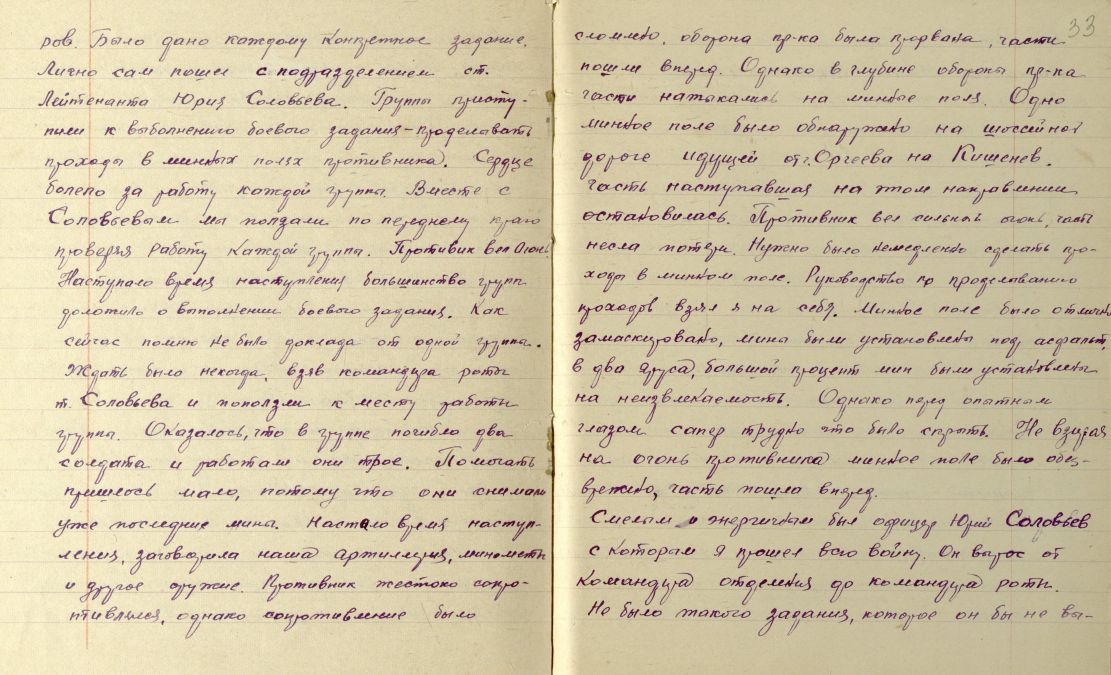 ров. Было дано каждому конкретное задание.
Лично сам пошел с подразделением ст.
Лейтенанта Юрия Соловьева. Группы присту-
пили к выполнению боевого задания – проделывать
проходы в минных полях противника. Сердце
болело за работу каждой группы. Вместе с
Соловьевым мы ползали по переднему краю
проверяя работу каждой группы. Противник вел огонь.
Наступало время наступления большинство групп
доложило о выполнении боевого задания. Как
сейчас помню не было доклада от одной группы.
Ждать было некогда, взяв командира роты
т. Соловьева и поползли к месту работы
группы. Оказалось, что в группе погибло два
солдата и работали они трое. Помогать
пришлось мало, потому что они снимали
уже последние мины. Настало время наступ-
ления, заговорила наша артиллерия, минометы
и другое оружие. Противник жестоко сопро-
тивлялся, однако сопротивление было
33
сломлено, оборона пр-ка была прорвана, части
пошли вперед. Однако в глубине обороны пр-ка
части натыкались на минные поля. Одно
минное поле было обнаружено на шоссейной
дороге идущей от г. Оргеева на Кишенев.
Часть наступавшая на этом направлении
остановилась. Противник вел сильный огонь, часть
несла потери. Нужно было немедленно сделать про-
ходы в минном поле. Руководство по проделованию
проходов взял я на себя. Минное поле было отлично
замаскировано, мины были установлены под асфальт,
в два яруса, большой процент мин были установлены
на неизвлекаемость. Однако перед опытным
глазом сапер трудно что было скрыть. Не взирая
на огонь противника минное поле было обез-
врежено, часть пошла вперед.
Смелым и энергичным был офицер Юрий Соловьев
с которым я прошел всю войну. Он вырос от
командира отделения до командира роты.
Не было такого задания, которое он бы не вы-